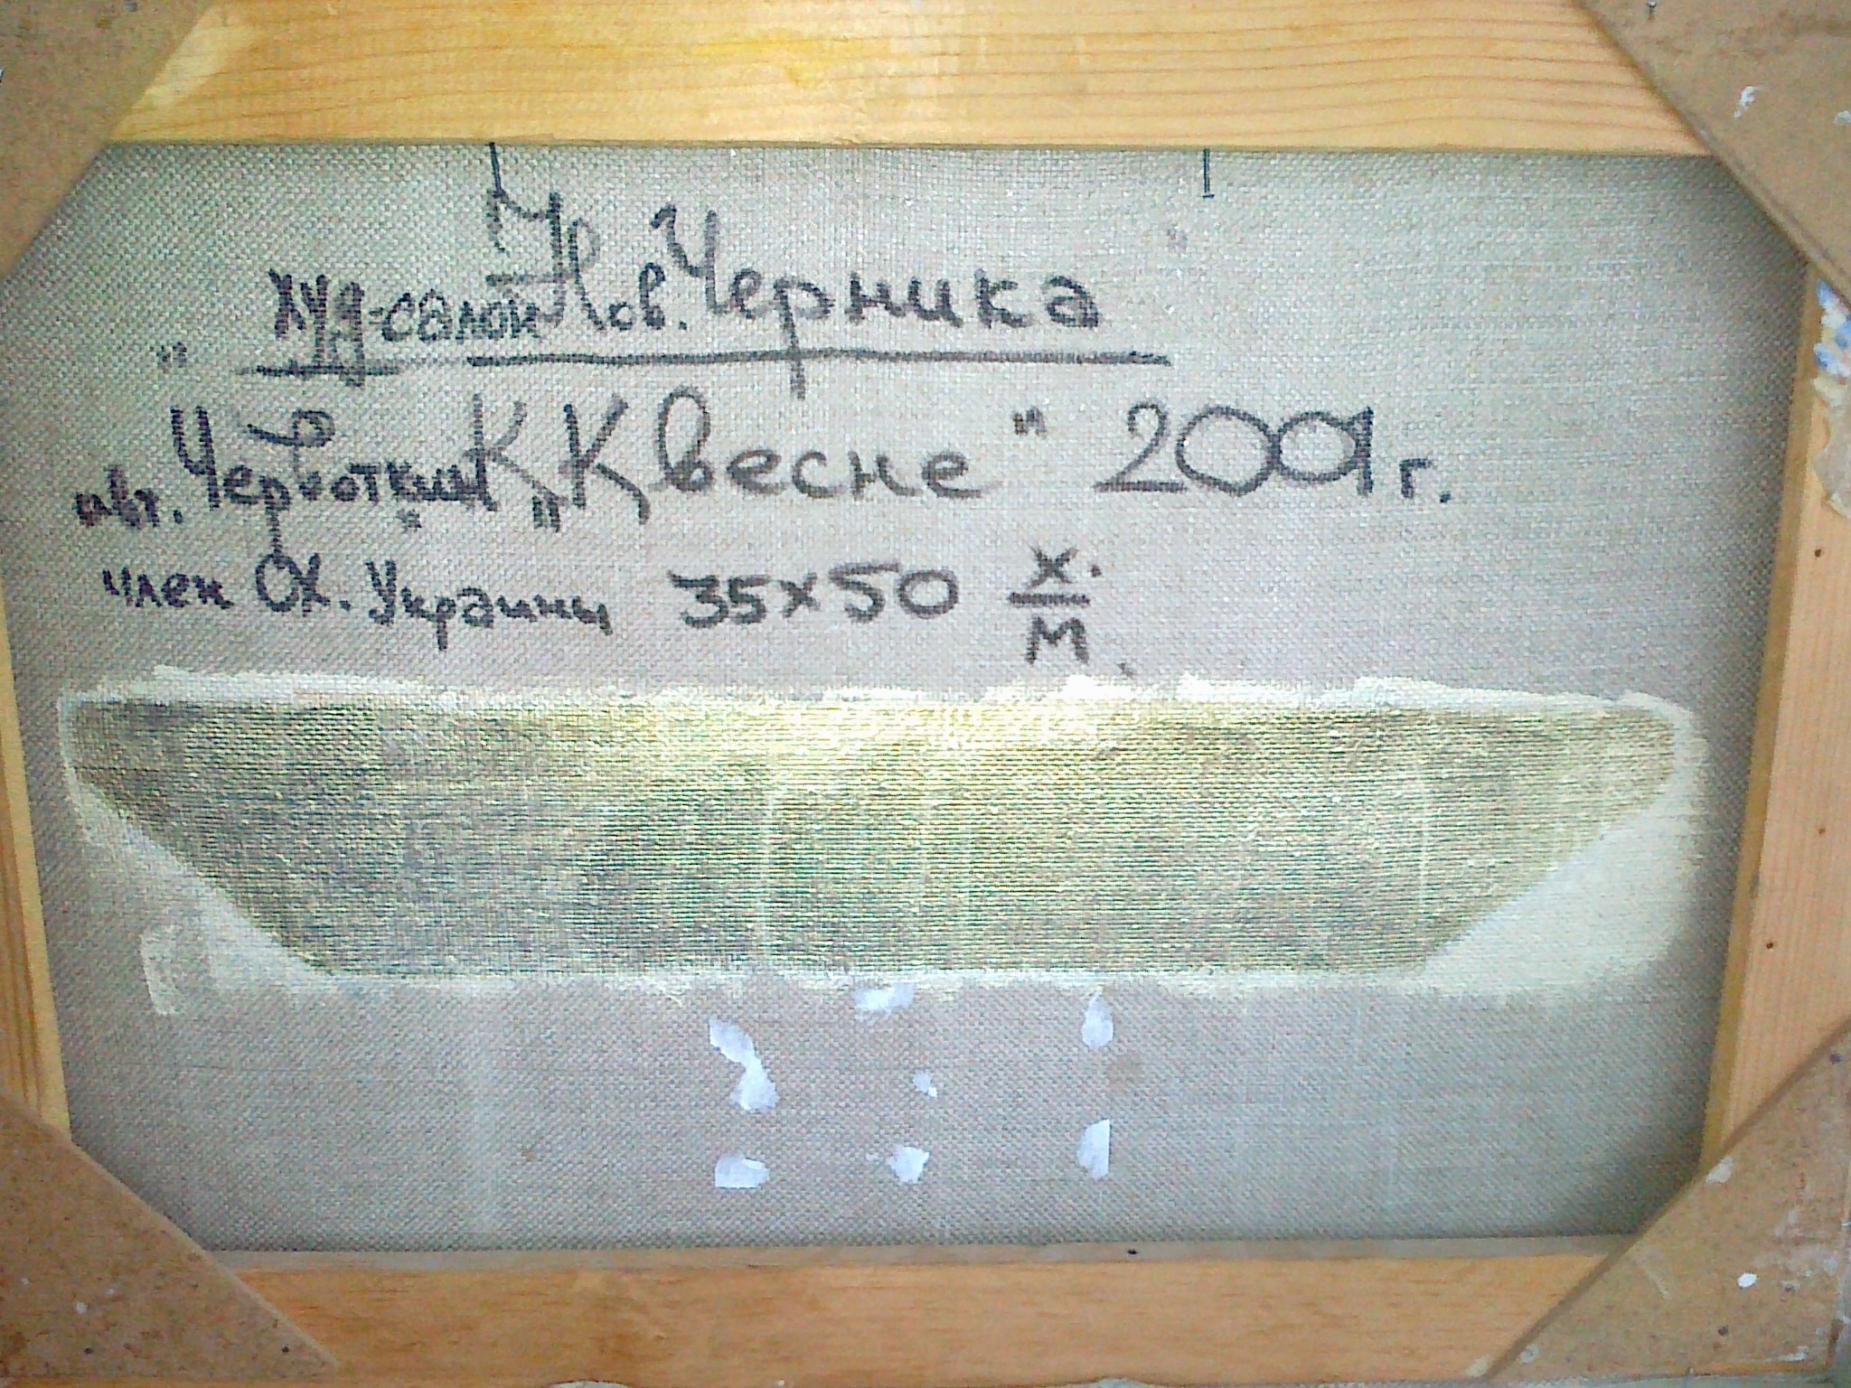 худ-салон Нов. Черника
авт. Червоткин К. „К весне" 2001 г.
член ОХ. Украины 35х50 х. / м.